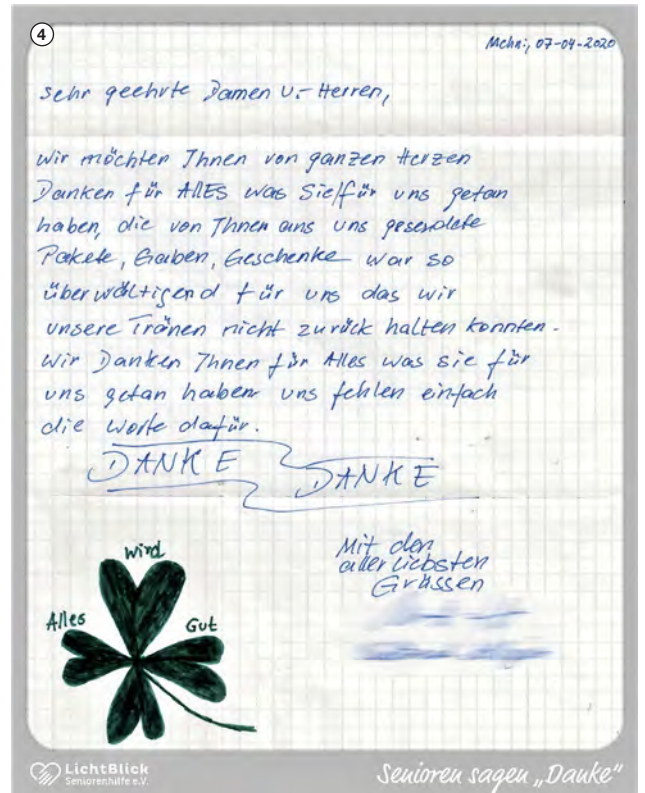 4
Mchn; 07-04-2020
sehr geehrte Damen u. Herren,
wir möchten Ihnen von ganzen Herzen
Danken für AllES was Sie für uns getan
haben, die von Ihnen ans uns gesendete
Pakete, Gaben, Geschenke war so
überwältigend für uns das wir
unsere Tränen nicht zurück halten konnten.
wir Danken Ihnen für Alles was sie für
uns getan haben uns fehlen einfach
die worte dafür.
DANKE DANKE
Mit den
aller liebsten
Grüssen
wird
Alles Gut
LichtBlick
Seniorenhilfe e.V.
Senioren sagen „Danke"